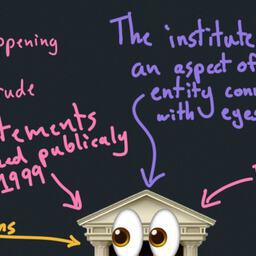 opening
rude
tements
ed publicaly
1999
The institute
an aspect of
entity con
with eyes
ns